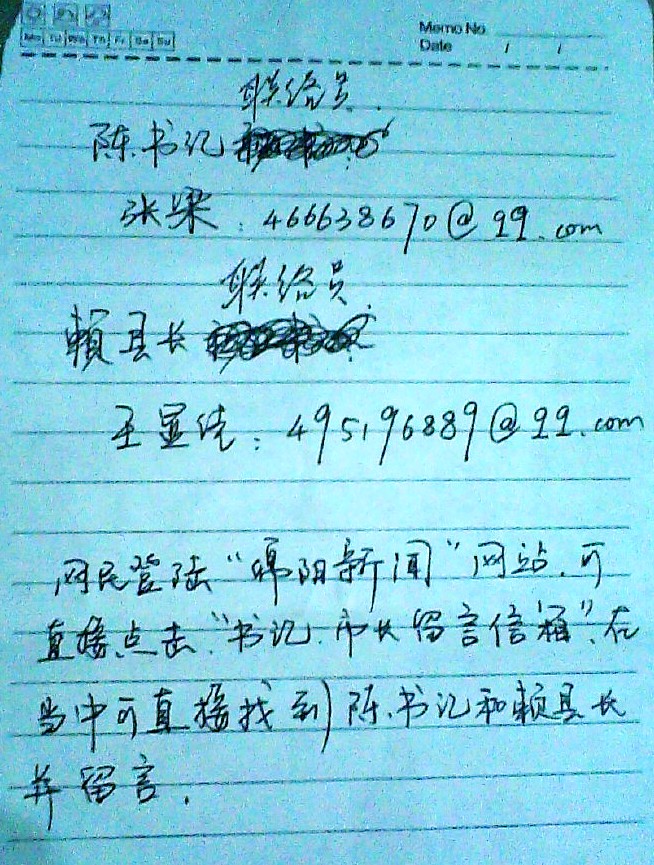 Memo No.
Mo Tu We Th Fr Sa Su
Date / /
联络员
陈书记
张梁：466638670@qq.com
联络员
赖县长
王显
：495196889@qq.com
网民登陆“绵阳新闻”网站，可
直接点击“书记、市长留言信箱”，在
当中可直接找到陈书记和赖县长
并留言．